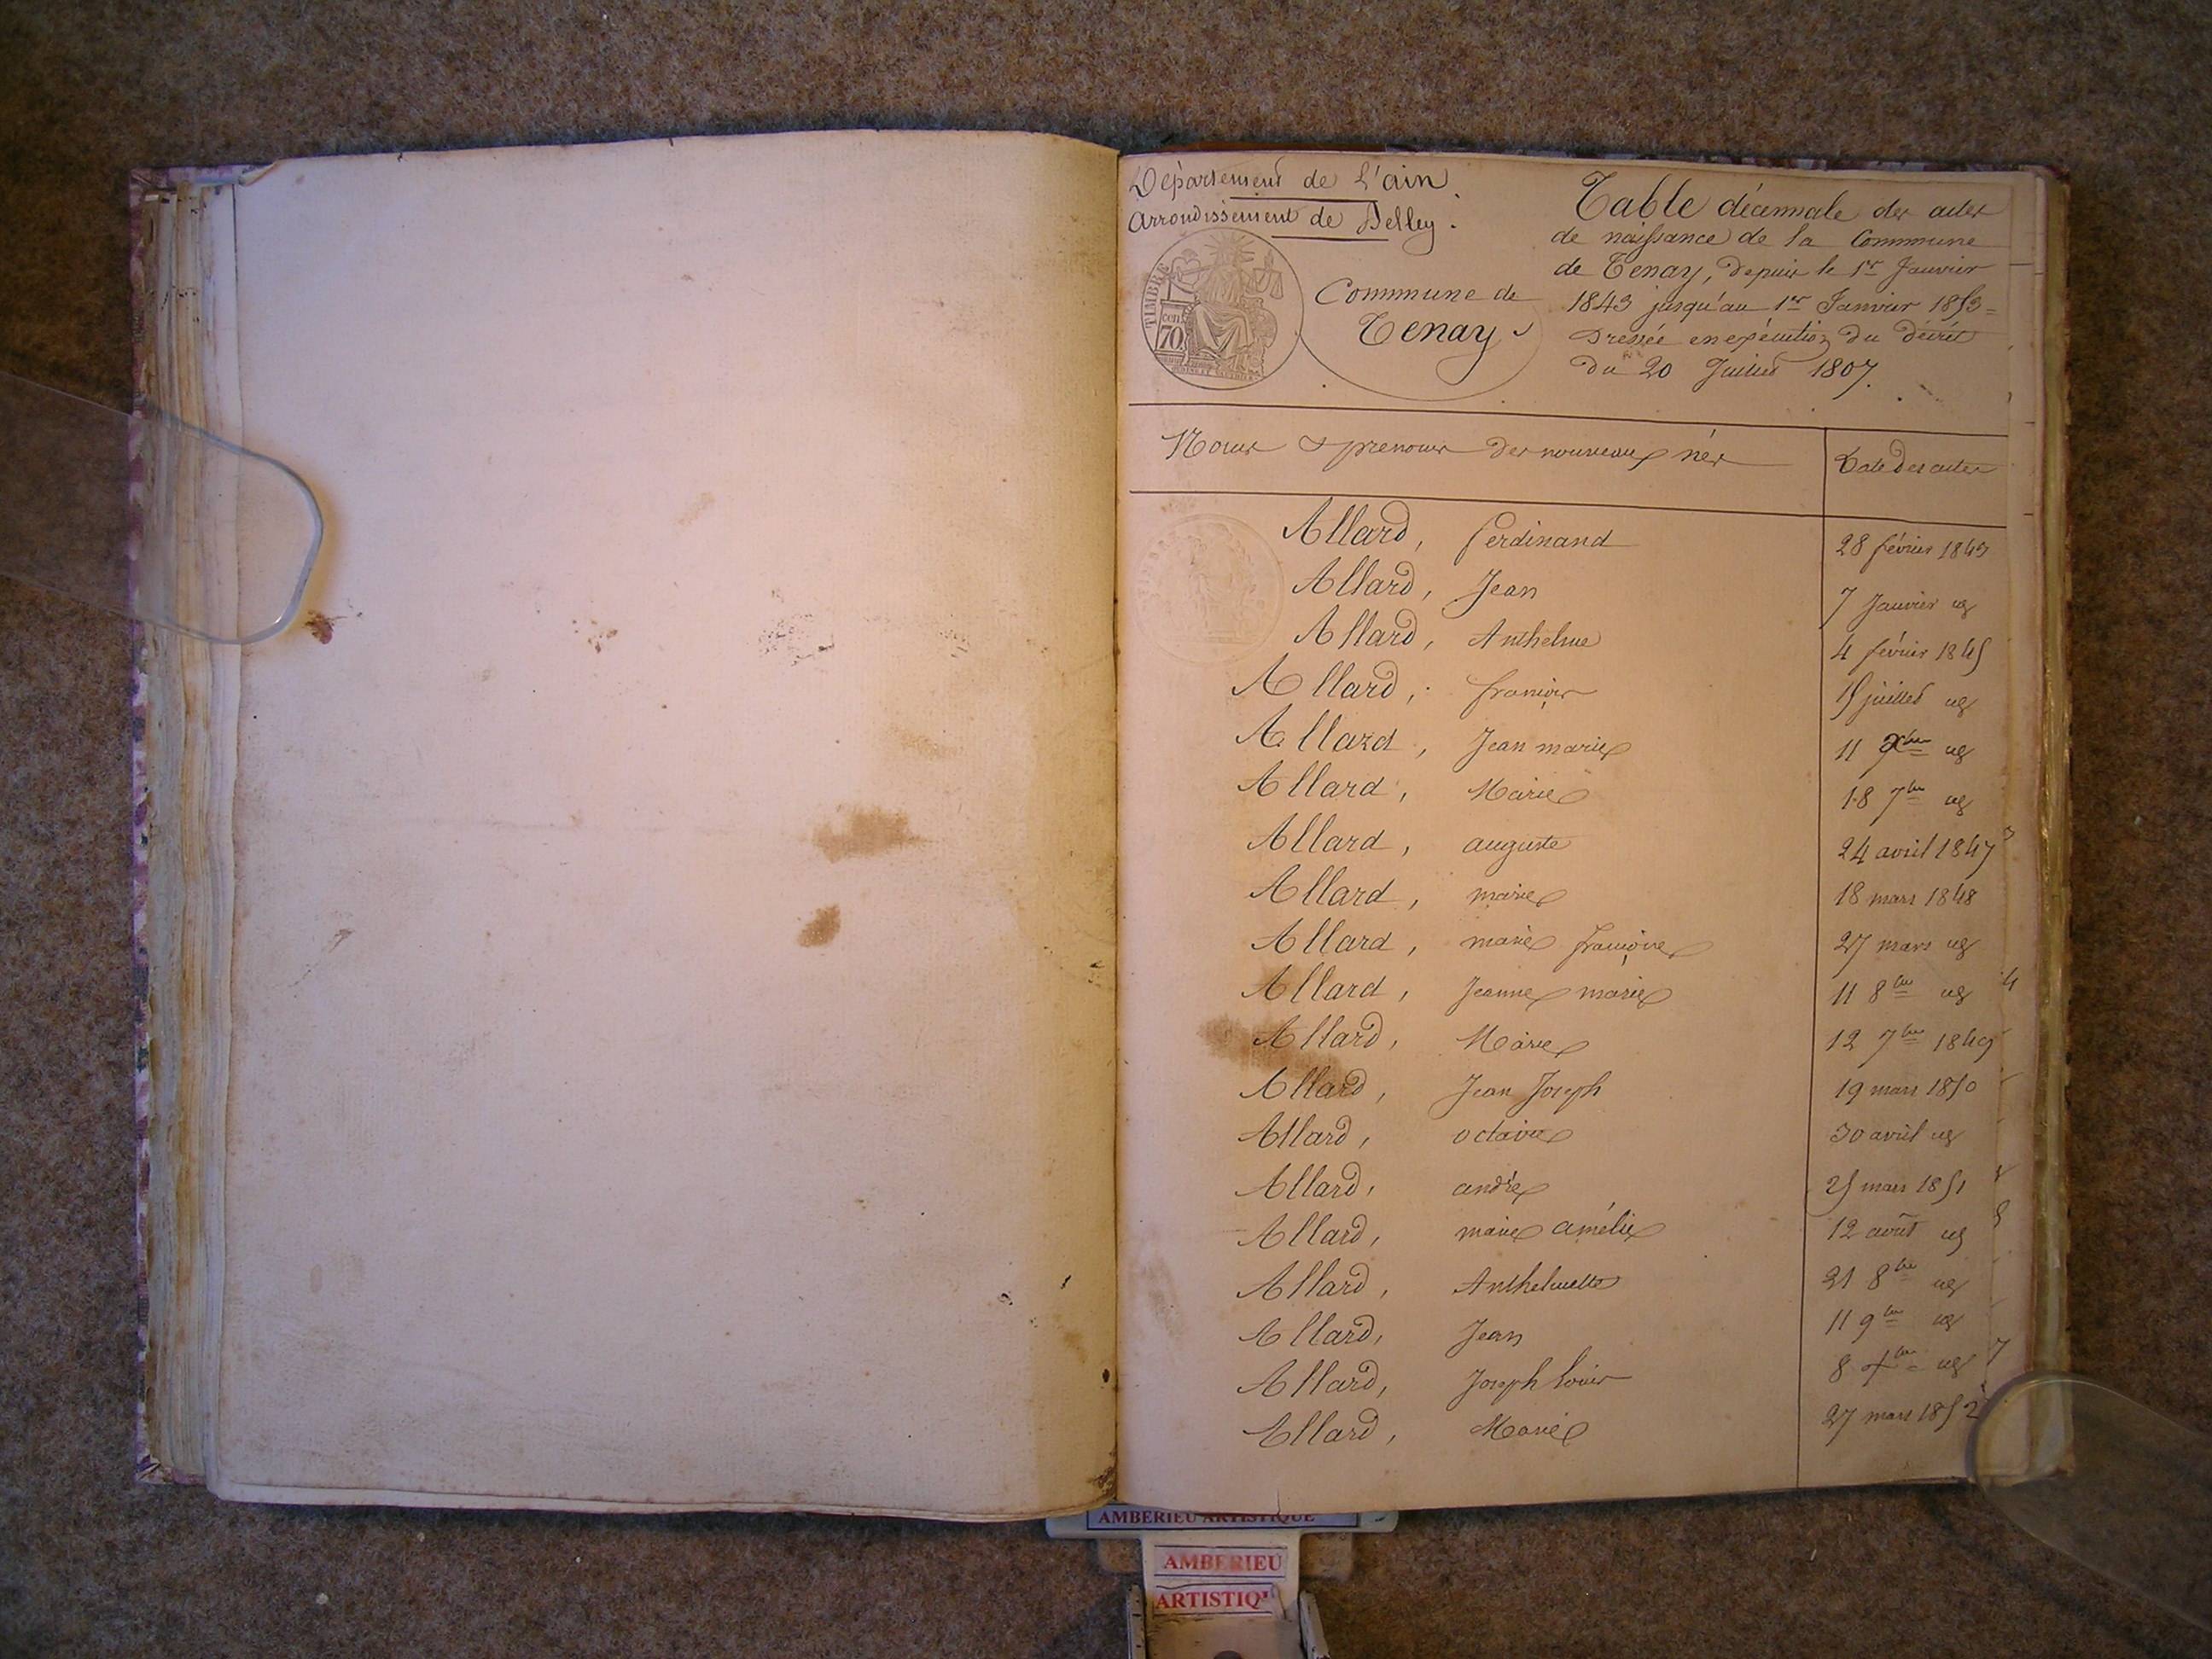 Département de l'ain.
Arrondissement de Belley.
TIMBRE
cen.
70
Commune de
Tenay
Table décennale des actes
de naissance de la Commune
de Tenay, depuis le 1er Janvier
1843 jusqu'au 1er Janvier 1853 =
Dressée en exécution du décrèt
du 20 Juillet 1807.
Noms & prenoms des nouveaux nés Date des actes
Allard, ferdinand 28 février 1843
Allard, Jean 7 Janvier
Allard, Anthelme 4 février 1845
Allard, françois 15 juillet
Allard, Jean marie 11 Xbre
Allard, Marie 18 7bre
Allard, auguste 24 avril 1847
Allard, marie 18 mars 1848
Allard, marie françoise 27 mars
Allard, Jeanne marie 11 8bre
Allard, Marie 12 7bre 1849
Allard, Jean Joseph 19 mars 1850
Allard, octavie 30 avril
Allard, andré 25 mars 1851
Allard, marie amélie 12 août
Allard, Anthelmette 21 8bre
Allard, Jean 11 9bre
Allard, Joseph Louis 8 Xbre
Allard, Marie 27 mars 1852
AMBERIEU ARTISTIQUE
AMBERIEU
ARTISTIQ